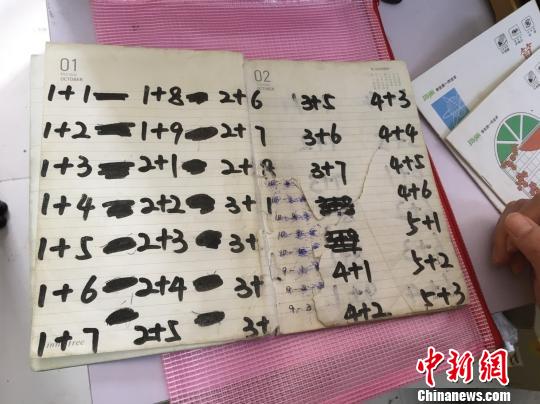 01
OCTOBER
1+1 1+8 2+6
1+2 1+9 2+7
1+3 2+1 2+8
1+4 2+2 3+1
1+5 2+3 3+
1+6 2+4 3+
1+7 2+5 3+
02
3+5 4+3
3+6 4+4
3+7 4+5
4+6
5+1
4+1 5+2
4+2 5+3
中新网
Chinanews.com